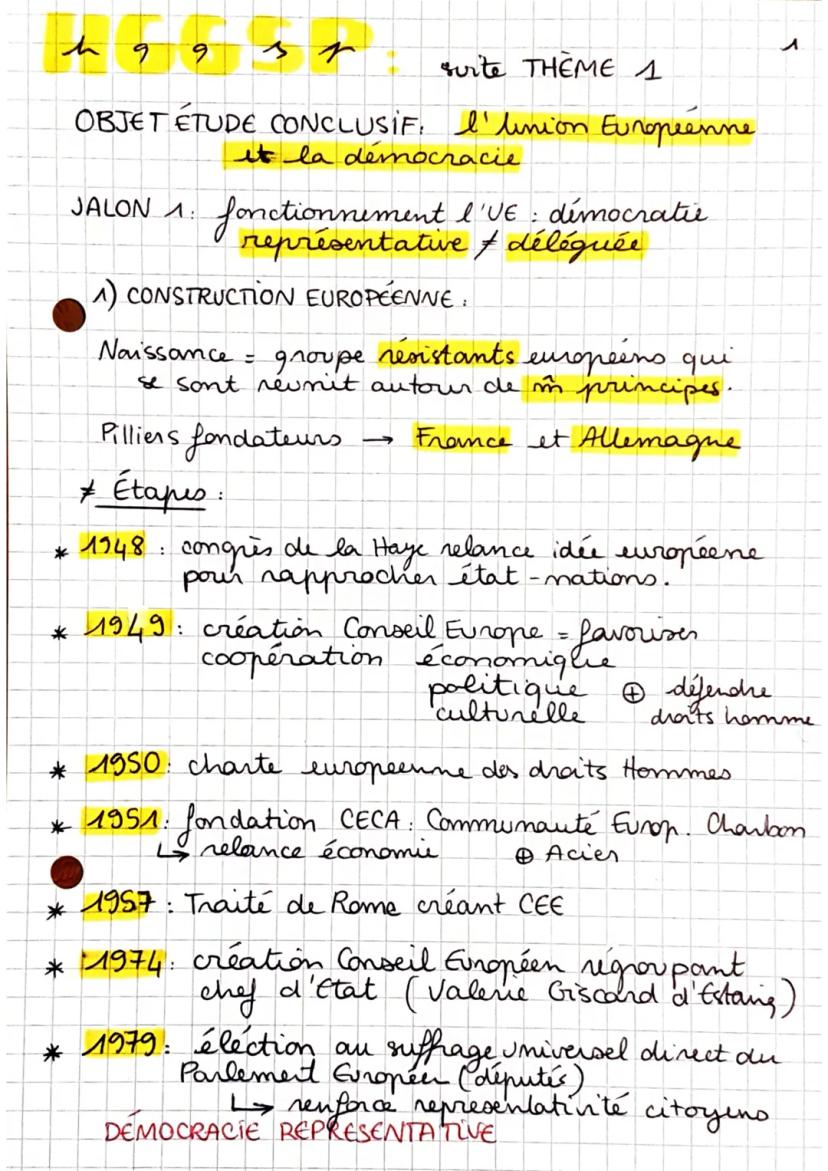 HGGSP :
1
suite THÈME 1
OBJET ÉTUDE CONCLUSIF : l'Union Européenne
et la démocracie
JALON 1 : fonctionnement l'UE : démocratie
représentative ≠ déléguée
1) CONSTRUCTION EUROPÉENNE :
Naissance = groupe résistants européens qui
se sont réunit autour de m̂ principes.
Pilliers fondateurs → France et Allemagne
≠ Étapes :
* 1948 : congrès de la Haye relance idée européene
pour rapprocher état-nations.
* 1949 : création Conseil Europe = favoriser
coopération économique
politique ⊕ défendre
culturelle droits homme
* 1950 : charte européenne des droits Hommes
* 1951 : fondation CECA : Communauté Europ. Charbon
↳ relance économie ⊕ Acier
* 1957 : Traité de Rome créant CEE
* 1974 : création Conseil Européen régroupant
chef d'Etat (Valerie Giscard d'Estaing)
* 1979 : éléction au suffrage universel direct du
Parlement Européen (députés)
↳ renforce représentativité citoyens
DÉMOCRACIE REPRÉSENTATIVE